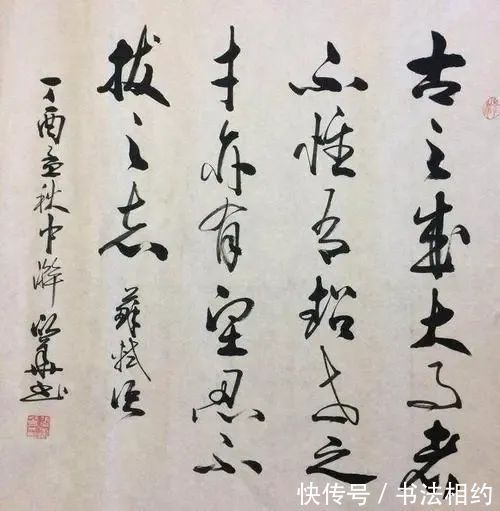 古之成大事者
不惟有超世之
才亦有坚忍不
拔之志 蘇軾语
丁酉孟秋中澣 华书
快传号 / 书法相约